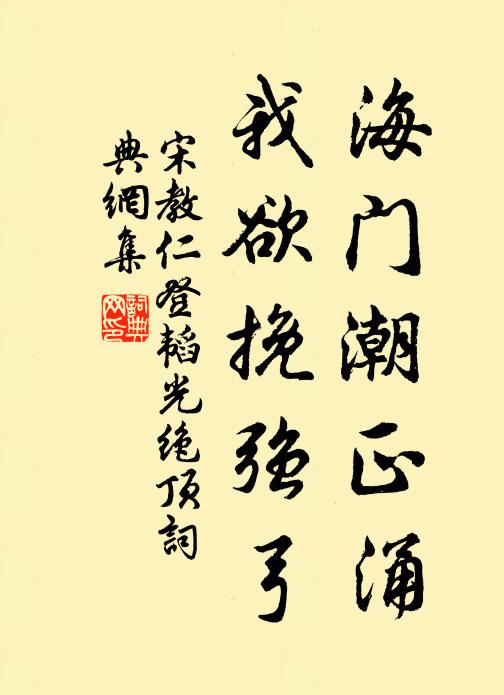 海门潮正涌
我欲挽强弓
宋教仁登韬光绝顶词
典網集
詞典
网印